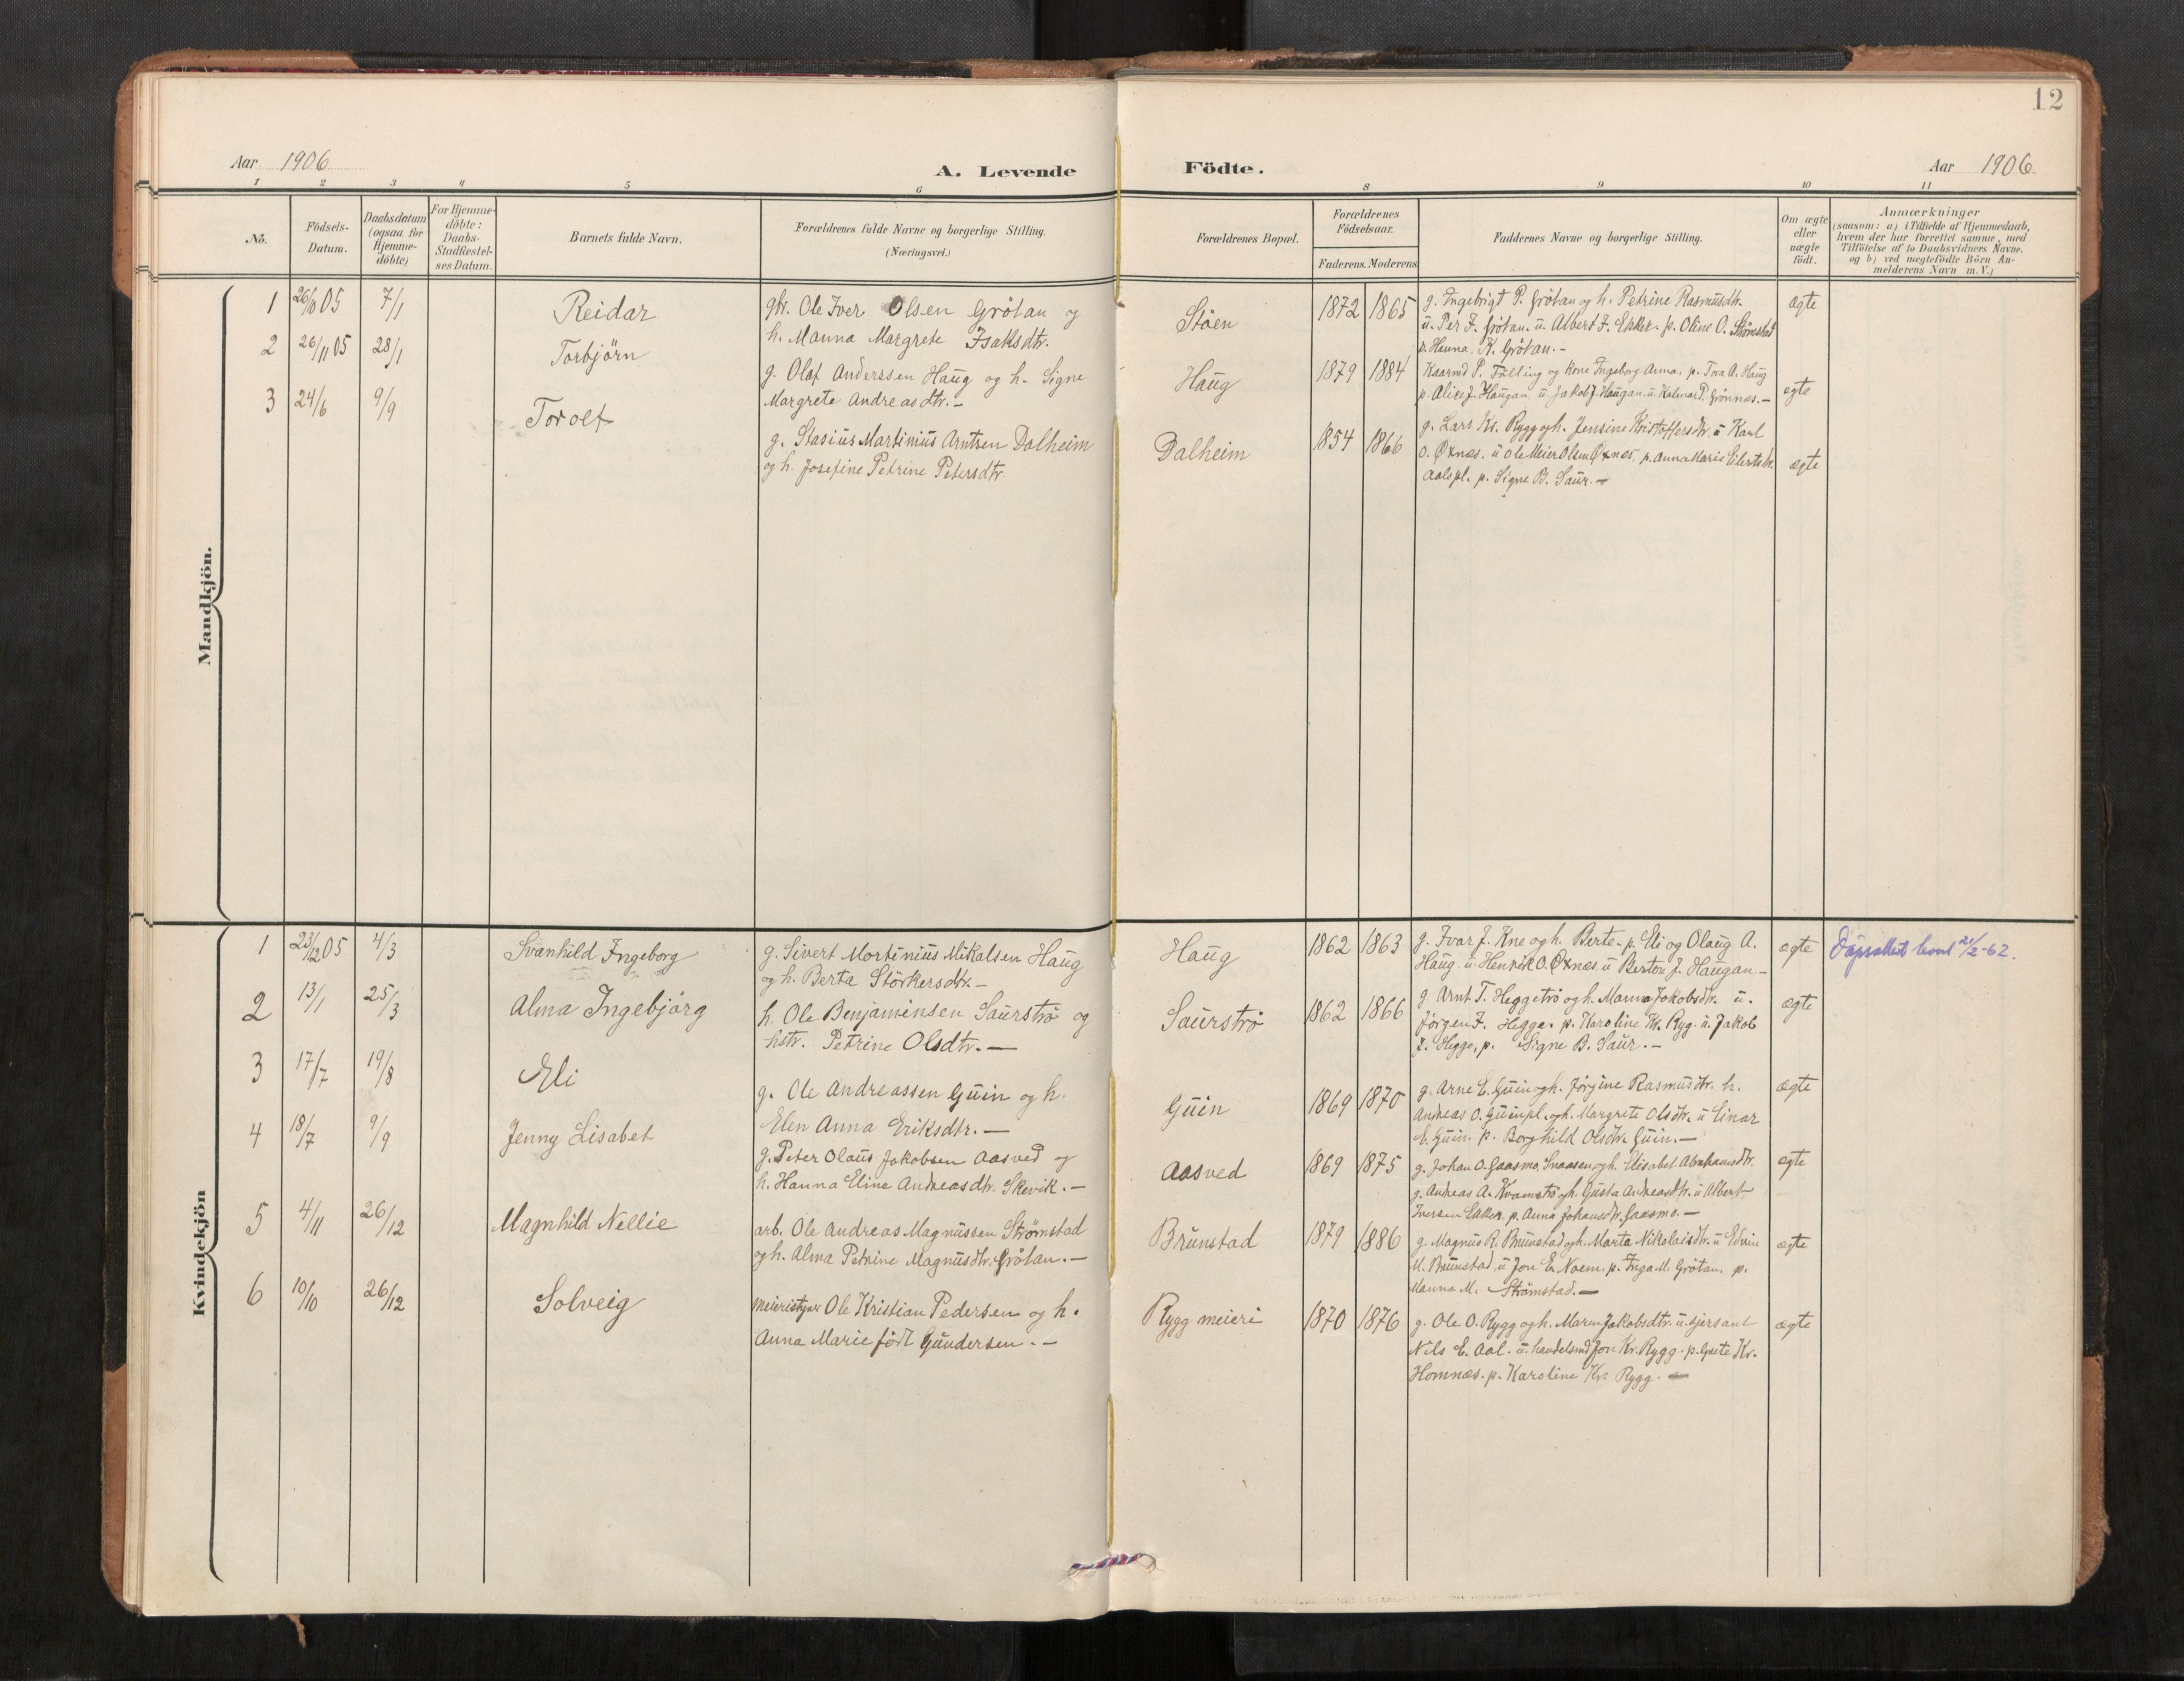 12
Aar 1906
A. Levende Födte.
Aar 1906
1 2 3 4 5 6 8 9 10 11
No.
Födsels-Datum.
Daabsdatum (ogsaa for Hjemme-döbte)
For Hjemme-döbte: Daabs-Stadfestel-ses Datum.
Barnets fulde Navn.
Forældrenes fulde Navne og borgerlige Stilling.
(Næringsvei.)
Forældrenes Bopæl.
Forældrenes Födselsaar.
Faderens. Moderens.
Faddernes Navne og borgerlige Stilling.
Om ægte eller uægte födt.
Anmærkninger
(saasom: a) i Tilfælde af Hjemmedaab,
hvem der har forrettet samme, med
Tilföielse af to Daabsvidners Navne.
og b) ved uægtefödte Börn An-
melderens Navn m. V.)
Mandkjön.
1 26/10 05 7/1 Reidar
gbr. Ole Iver Olsen Grötan og
h. Manna Margrete Isaksdtr.
Stöen 1872 1865
g. Ingebrigt P. Grötan og h. Petrine Rasmusdtr.
u. Per J. Grötan. u. Albert J. Ekker. p. Oline O. Strömstad
p. Hanna K. Grötan.-
ægte
2 26/11 05 28/1 Torbjörn
g. Olaf Anderssen Haug og h. Signe
Margrete Andreasdtr.-
Haug 1879 1884
P. Fölling og Kone Ingeborg Anna, p. Tora A. Haug
p. Alice J. Haugan, u. Jakob J. Haugan. u. Kalmar P. Grönnes.-
egte
3 24/6 9/9 Torolf
g. Stasius Martinius Arntsen Dalheim
og h. Josefine Petrine Petersdtr.
Dalheim 1854 1866
g. Lars Kr. Rygg og h. Jensine Kristoffersdtr. u Karl
O. Öxnes. u Ole Meier Olsen Öxnes. p. Anna Marie Eilertsdtr.
Aalspl. p. Signe B. Saur.-
ægte
Kvindekjön
1 23/12 05 4/3 Svanhild Ingeborg
g. Sivert Mortinius Mikalsen Haug
og h. Berta Störkersdtr.-
Haug 1862 1863
g. Ivar J. Kne og h. Berte. p. Eli og Olaug A.
Haug u. Henrik O. Öxnes. u Berton J. Haugan-
ægte
21/2-62.
2 13/1 25/3 Alma Ingebjörg
h. Ole Benjaminsen Saurströ og
hstr. Petrine Olsdtr.-
Saurströ 1862 1866
g. Arnt T. Heggetrö og h. Manna Jakobsdtr. u.
Jörgen J. Hegge. p. Karoline Kr. Ryg. u. Jakob
J. Hegge, p. Signe B. Saur.-
ægte
3 17/7 19/8 Eli
g. Ole Andreassen Guin og h.
Elen Anna Eriksdtr.-
Guin 1869 1870
g. Arne E. Guin og h. Jörgine Rasmusdtr. h.
Andreas O. Guinpl. og h. Margrete Olsdtr. u Einar
E. Guin. p. Borghild Olsdtr. Guin.-
ægte
4 18/7 9/9 Jenny Lisabet
g. Peter Olaus Jakobsen Aasved og
h. Hanna Eline Andreasdtr. Skevik.-
Aasved 1869 1875
g. Johan O. Gaasmo, Snaasen og h. Elisabet Abrahamsdtr.
g. Andreas A. Kvamströ og h. Gusta Andreasdtr. u Albert
Iversen Ekker. p. Anna Johansdtr. Gaasmo.-
ægte
5 4/11 26/12 Magnhild Nellie
arb. Ole Andreas Magnussen Strömstad
og h. Alma Petrine Magnusdtr. Grötan.-
Brunstad 1879 1886
g. Magnus R. Brunstad og h. Marta Nikolaisdtr. u Edvin
M. Brunstad u Jon E. Noem. p. Inga M. Grötan, p.
Manna M. Strömstad.-
ægte
6 10/10 26/12 Solveig
meieristyrer Ole Kristian Pedersen og h.
Anna Marie född Gundersen.-
Rygg meieri 1870 1876
g. Ole O. Rygg og h. Maren Jakobsdtr. u. sjersant
Nils E. Aal. u. handelsmd. Jon Kr. Rygg. p. Grete Kr.
Homnæs. p. Karoline Kr. Rygg.-
ægte